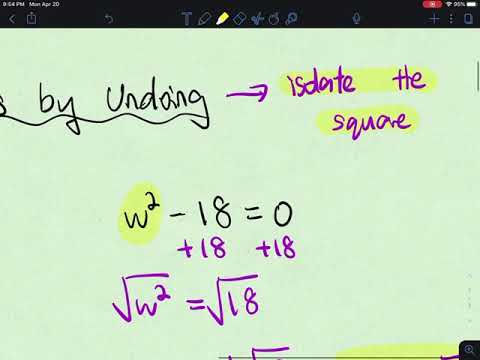 9:54 PM Mon Apr 20 95%
by Undoing → isolate the
square
w² - 18 = 0
+18 +18
√w² = √18